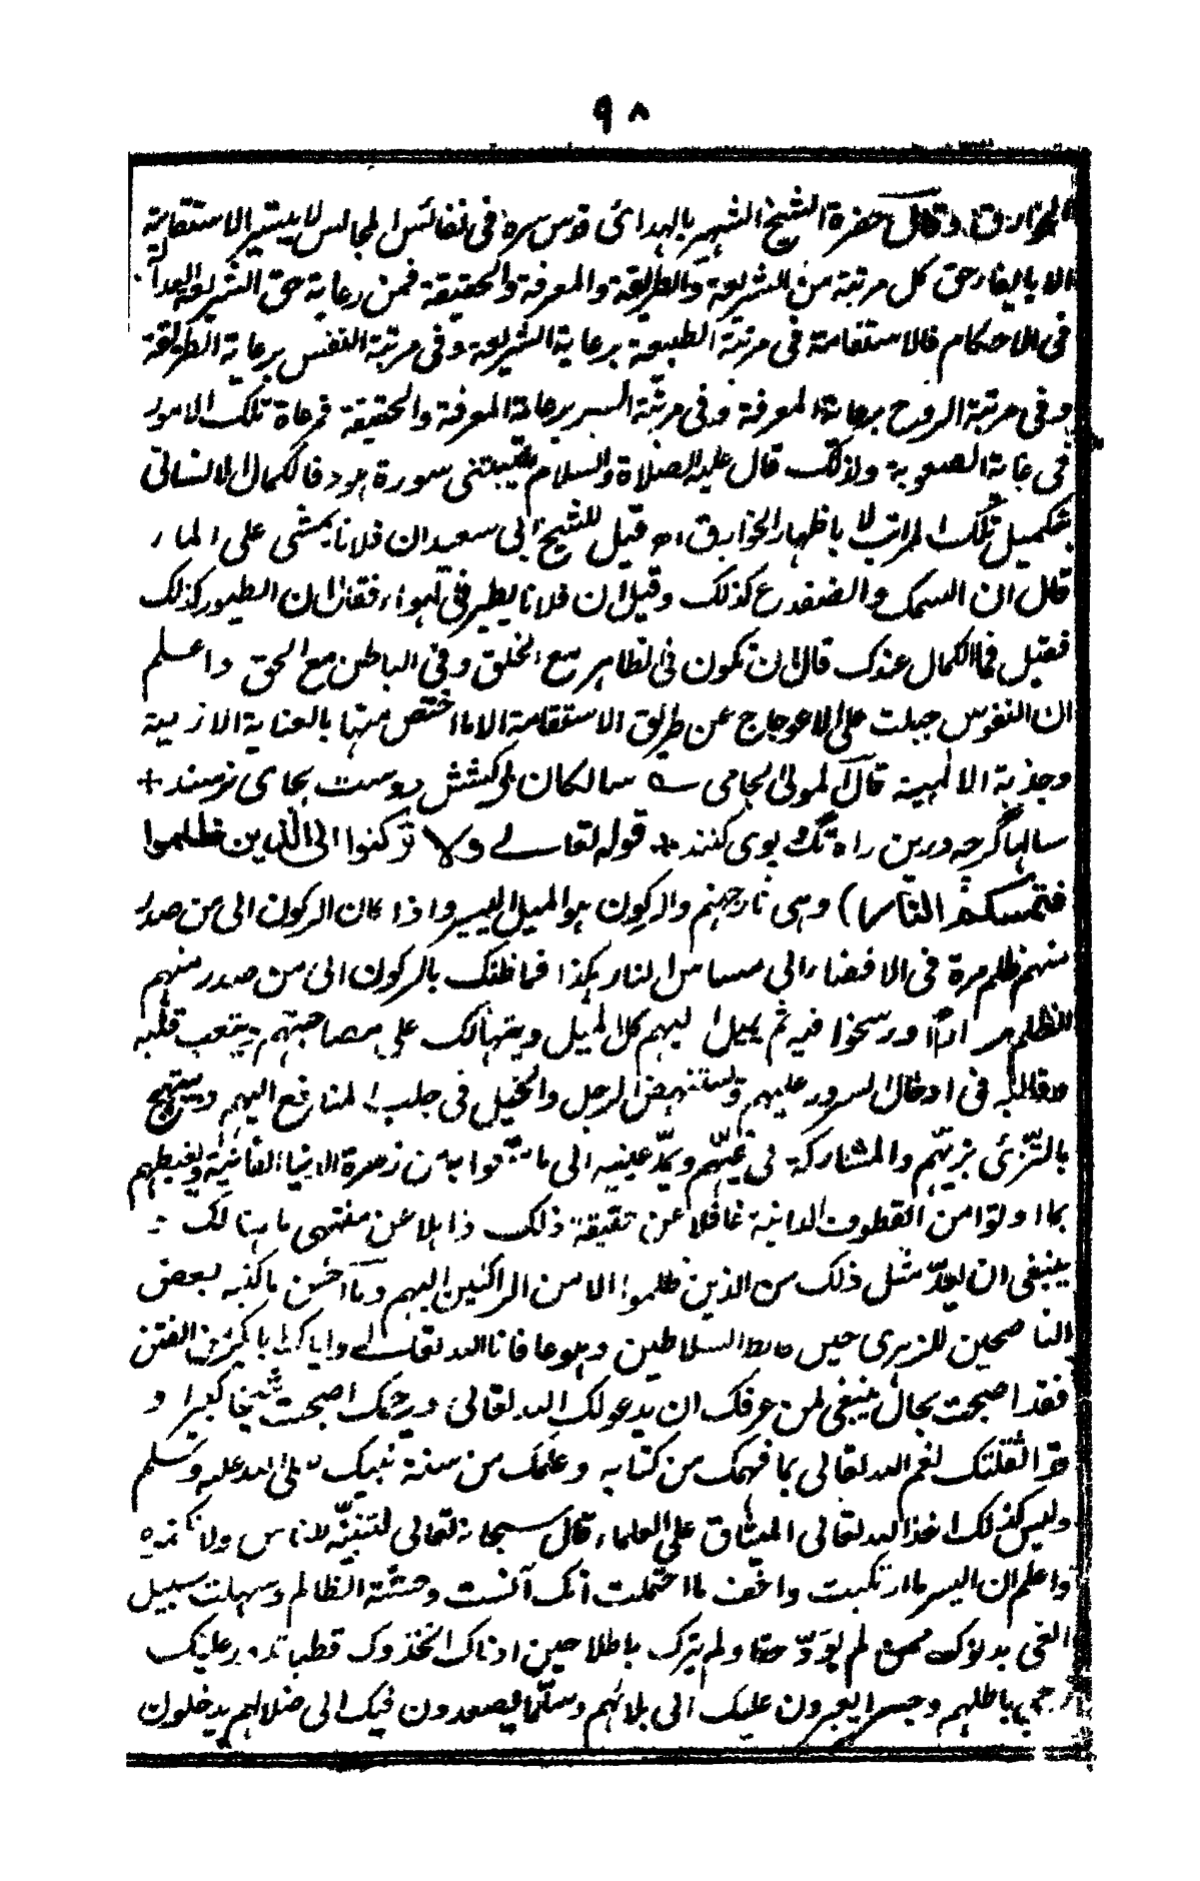 ٩٨
الخوارق، وقال حضرة الشيخ الشهير بالهدائى قدس سره فى نفائس المجالس لا يتيسر الاستقامة
الا بايفاء حق كل مرتبة من الشريعة والطريقة والمعرفة والحقيقة فمن رعاية حق الشريعة العدالة
فى الاحكام فالاستقامة فى مرتبة الطبيعة برعاية الشريعة وفى مرتبة النفس برعاية الطريقة
وفى مرتبة الروح برعاية المعرفة وفى مرتبة السر برعاية المعرفة والحقيقة فمراعاة تلك الامور
فى غاية الصعوبة ولذلك قال عليه الصلاة والسلام شيبتنى سورة هود فالكمال الانسانى
بتكميل تلك المراتب لا باظهار الخوارق اهـ قيل للشيخ ابى سعيد ان فلانا يمشى على الماء
قال ان السمك والضفدع كذلك وقيل ان فلانا يطير فى الهواء فقال ان الطيور كذلك
فقيل فما الكمال عندك قال ان تكون فى الظاهر مع الخلق وفى الباطن مع الحق واعلم
ان النفوس جبلت على الاعوجاج عن طريق الاستقامة الا ما اختص منها بالعناية الازلية
وجذبة الالهية قال المولى الجامى ؎ سالكان بى كشش دوست بجاى نرسند +
سالها گرچه درين راه تگ و پوى كنند + قوله تعالى ولا تركنوا الى الذين ظلموا
فتمسكم النار) وهى نار جهنم والركون هو الميل اليسير واذا كان الركون الى من صدر
منهم ظلم مرة فى الافضاء الى مساس النار هكذا فما ظنك بالركون الى من صدر منهم
الظلم مرارا ورسخوا فيه ثم يميل اليهم كل الميل ويتهالك على مصاحبتهم ويتعب قلبه
وقالبه فى ادخال السرور عليهم ويستنهض الرجل والخيل فى جلب المنافع اليهم ويبتهج
بالتزيى بزيهم والمشاركة فى غيهم ويمد عينيه الى ما متعوا به من زهرة الدنيا الفانية ويغبطهم
بما اوتوا من القطوف الدانية غافلا عن حقيقة ذلك ذاهلا عن منتهى ما هنالك
ينبغى ان يعد مثل ذلك من الذين ظلموا لا من الراكنين اليهم وما احسن ما كتبه بعض
الناصحين للزهرى حين خالط السلاطين وهو عافانا الله تعالى واياك يا ابا بكر من الفتن
فقد اصبحت بحال ينبغى لمن عرفك ان يدعو لك الله تعالى ويرحمك اصبحت شيخا كبيرا و
قد اثقلتك نعم الله تعالى بما فهمك من كتابه وعلمك من سنة نبيك صلى الله عليه وسلم
وليس كذلك اخذ الله تعالى الميثاق على العلماء قال سبحانه تعالى لتبيننه للناس ولا تكتمونه
واعلم ان ايسر ما ارتكبت واخف ما احتملت انك آنست وحشة الظالم وسهلت سبيل
الغى بدنوك ممن لم يؤد حقا ولم يترك باطلا حين ادناك اتخذوك قطبا تدور عليك
رحى باطلهم وجسرا يعبرون عليك الى بلائهم وسلما يصعدون فيك الى ضلالهم يدخلون